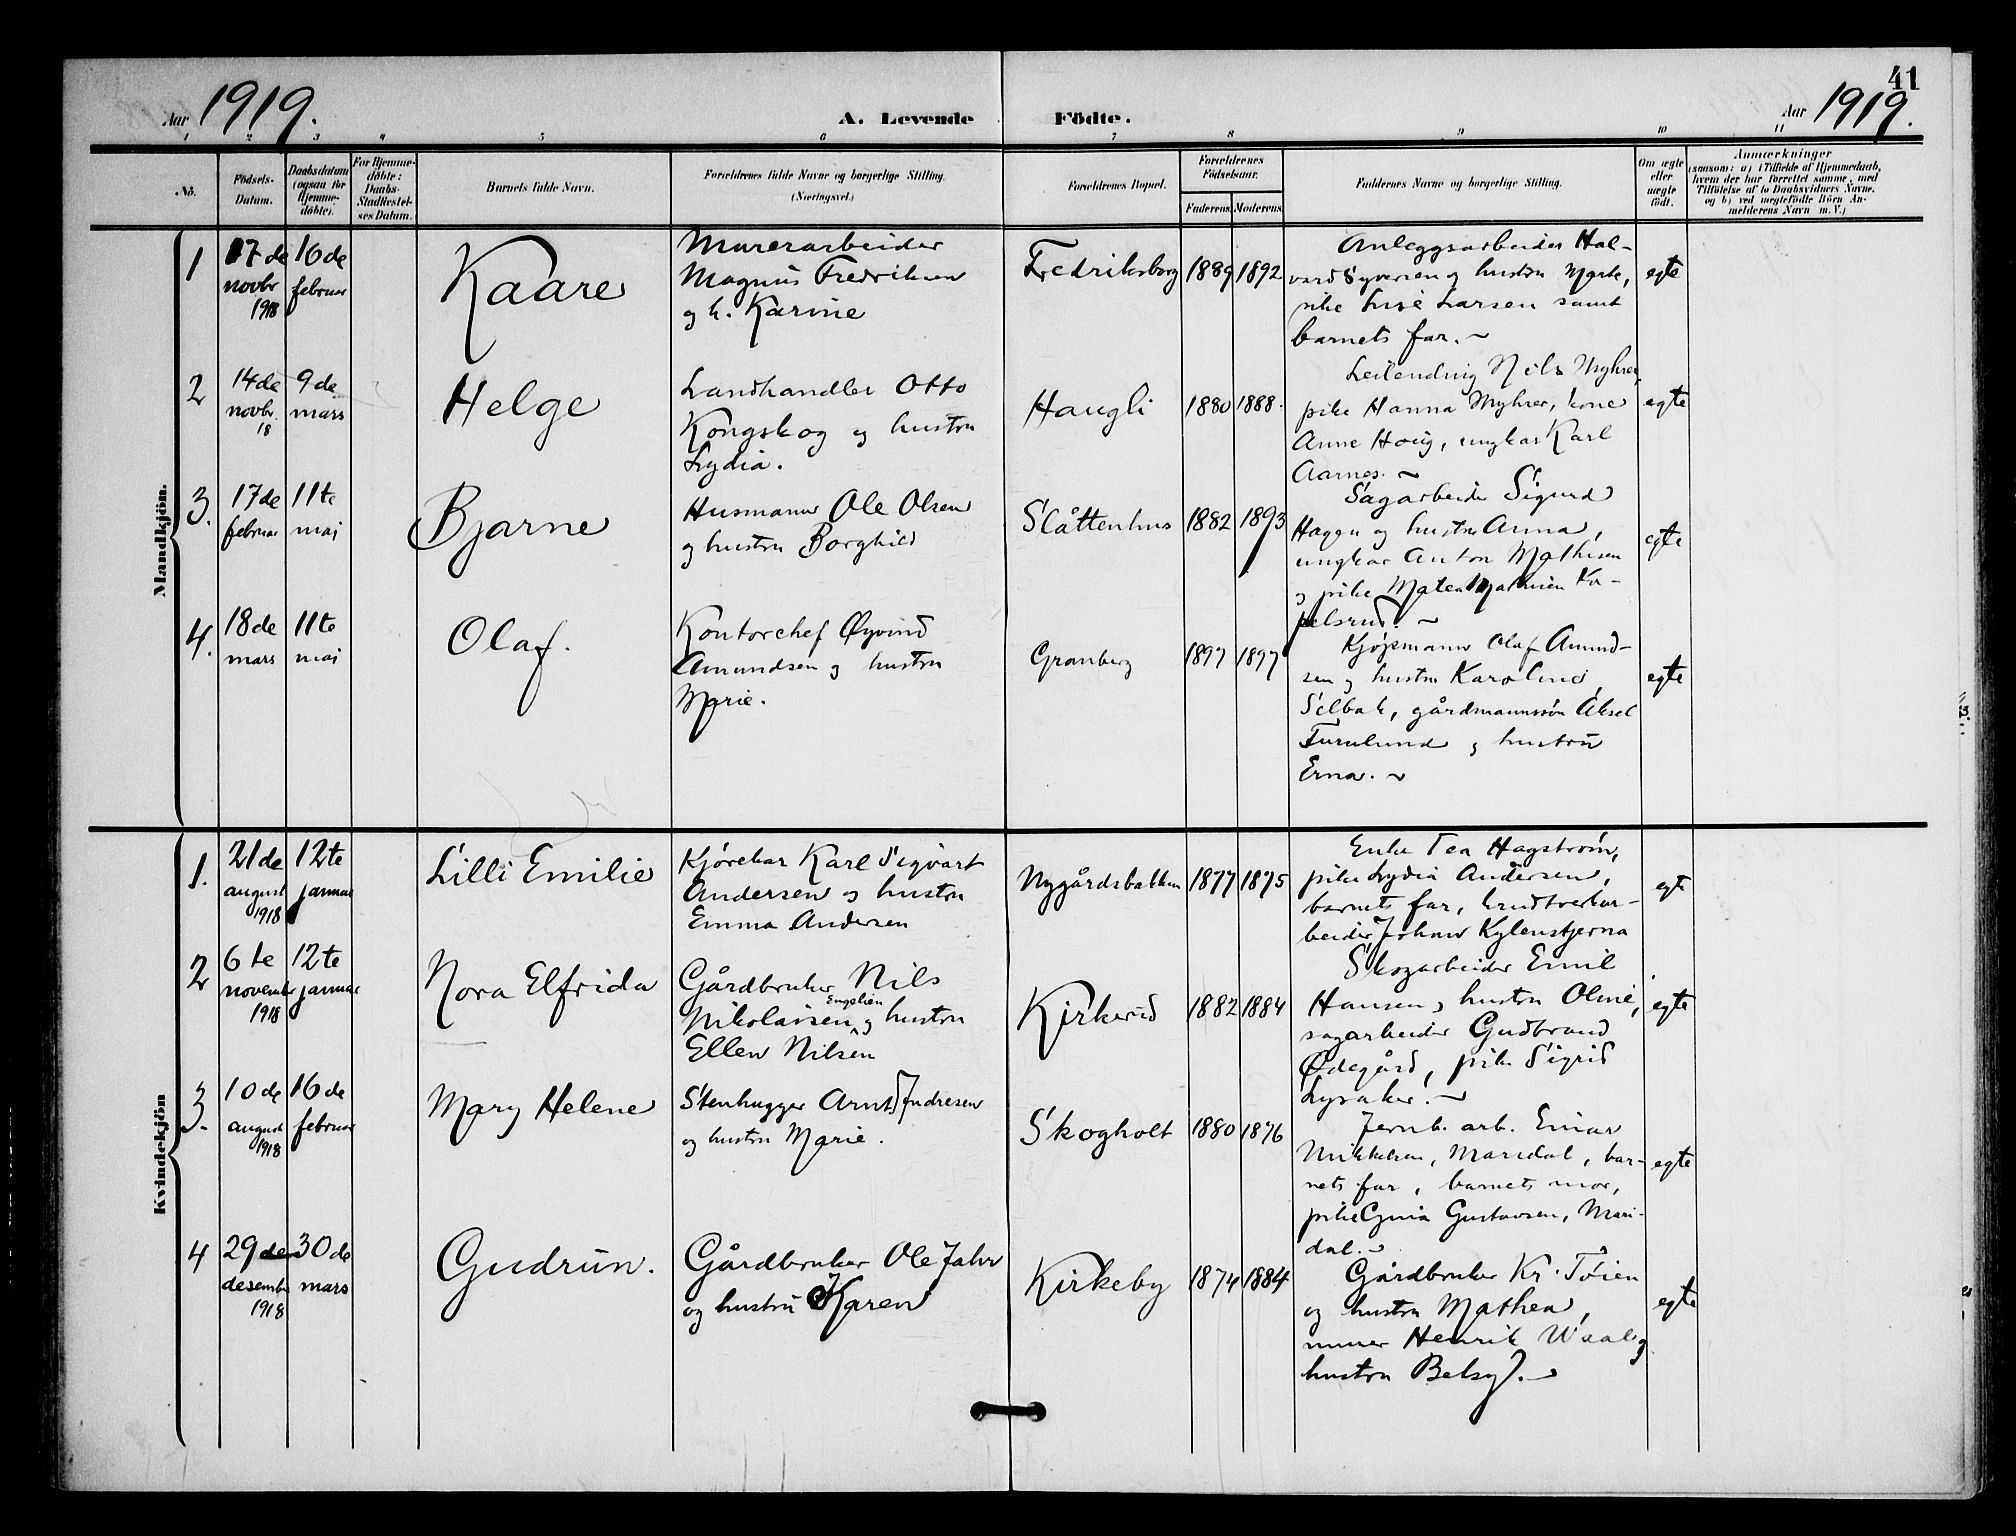 41
Aar 1919. A. Levende Födte. Aar 1919.
1 2 3 4 5 6 7 8 9 10 11
No. Födsels-Datum. Daabsdatum (ogsaa for Hjemme-döbte). For Hjemme-döbte: Daabs-Stadfæstel-ses Datum. Barnets fulde Navn. Forældrenes fulde Navne og borgerlige Stilling. (Næringsvei.) Forældrenes Bopæl. Forældrenes Födselsaar. Faderens. Moderens. Faddernes Navne og borgerlige Stilling. Om ægte eller uægte födt. Anmærkninger
(saasom: a) i Tilfælde af Hjemmedaab,
hvem der har forrettet samme, med
Tilföielse af to Daabsvidners Navne.
og b) ved uægtefödte Börn An-
melderens Navn m.V.)
Mandkjön.
1 17de novbr 1918 16de februar Kaare
Murerarbeider
Magnus Fredriksen
og h. Karine
Fredriksborg 1889 1892
Anleggsarbeider Hal-
vard Syversen og hustru Marte,
pike Lise Larsen samt
barnets far. ~
egte
2 14de novbr. 18 9de mars Helge
Landhandler Otto
Kongskog og hustru
Lydia.
Haugli 1880 1888.
Leilending Nils Myhrer,
pike Hanna Myhrer, kone
Anne Houg, ungkar Karl
Aarnes. ~
egte
3. 17de februar 11te mai Bjarne
Husmann Ole Olsen
og hustru Borghild
Slåttenhus 1882 1893
Sagarbeider Sigurd
Hagen og hustru Anna,
ungkar Anton Mathisen
og pike Maten Mathisen Ka-
pelsrud. ~
egte
4. 18de mars 11te mai Olaf.
Kontorchef Øyvind
Amundsen og hustru
Marie.
Granberg 1897 1897
Kjøpmann Olaf Amund-
sen og hustru Karoline,
Selbak, gårdmannssøn Aksel
Furulund og hustru
Erna. ~
egte
Kvindekjön
1. 21de august 1918 12te januar Lilli Emilie
Kjørekar Karl Sigvart
Andersen og hustru
Emma Andersen
Nygårdsbakken 1877 1875
Enke Tea Hagstrøm,
pike Lydia Andersen,
barnets far, krudtverkar-
beider Johan Kylenstjerna
egt
2 6te november 1918 12te januar Nora Elfrida
Gårdbruker Nils
Nikolaisen Engelien og hustru
Ellen Nilsen
Kirkerud 1882 1884
Skogarbeider Emil
Hansen og hustru Oline,
sagarbeider Gudbrand
Ødegård, pike Sigrid
Lysaker. ~
egte
3. 10de august 1918 16de februar Mary Helene
Stenhugger Arnt Andresen
og hustru Marie.
Skogholt 1880 1876
Jernb. arb. Einar
Mikkelsen, Maridal, bar-
nets far, barnets mor,
pike Gustavsen, Mari-
dal. ~
egte
4 29de desember 1918 30de mars Gudrun.
Gårdbruker Ole Jahr
og hustru Karen
Kirkeby 1874 1884
Gårdbruker Kr. Tøien
og hustru Mathea,
murer Henrik Waal og
hustru Betsy. ~
egte